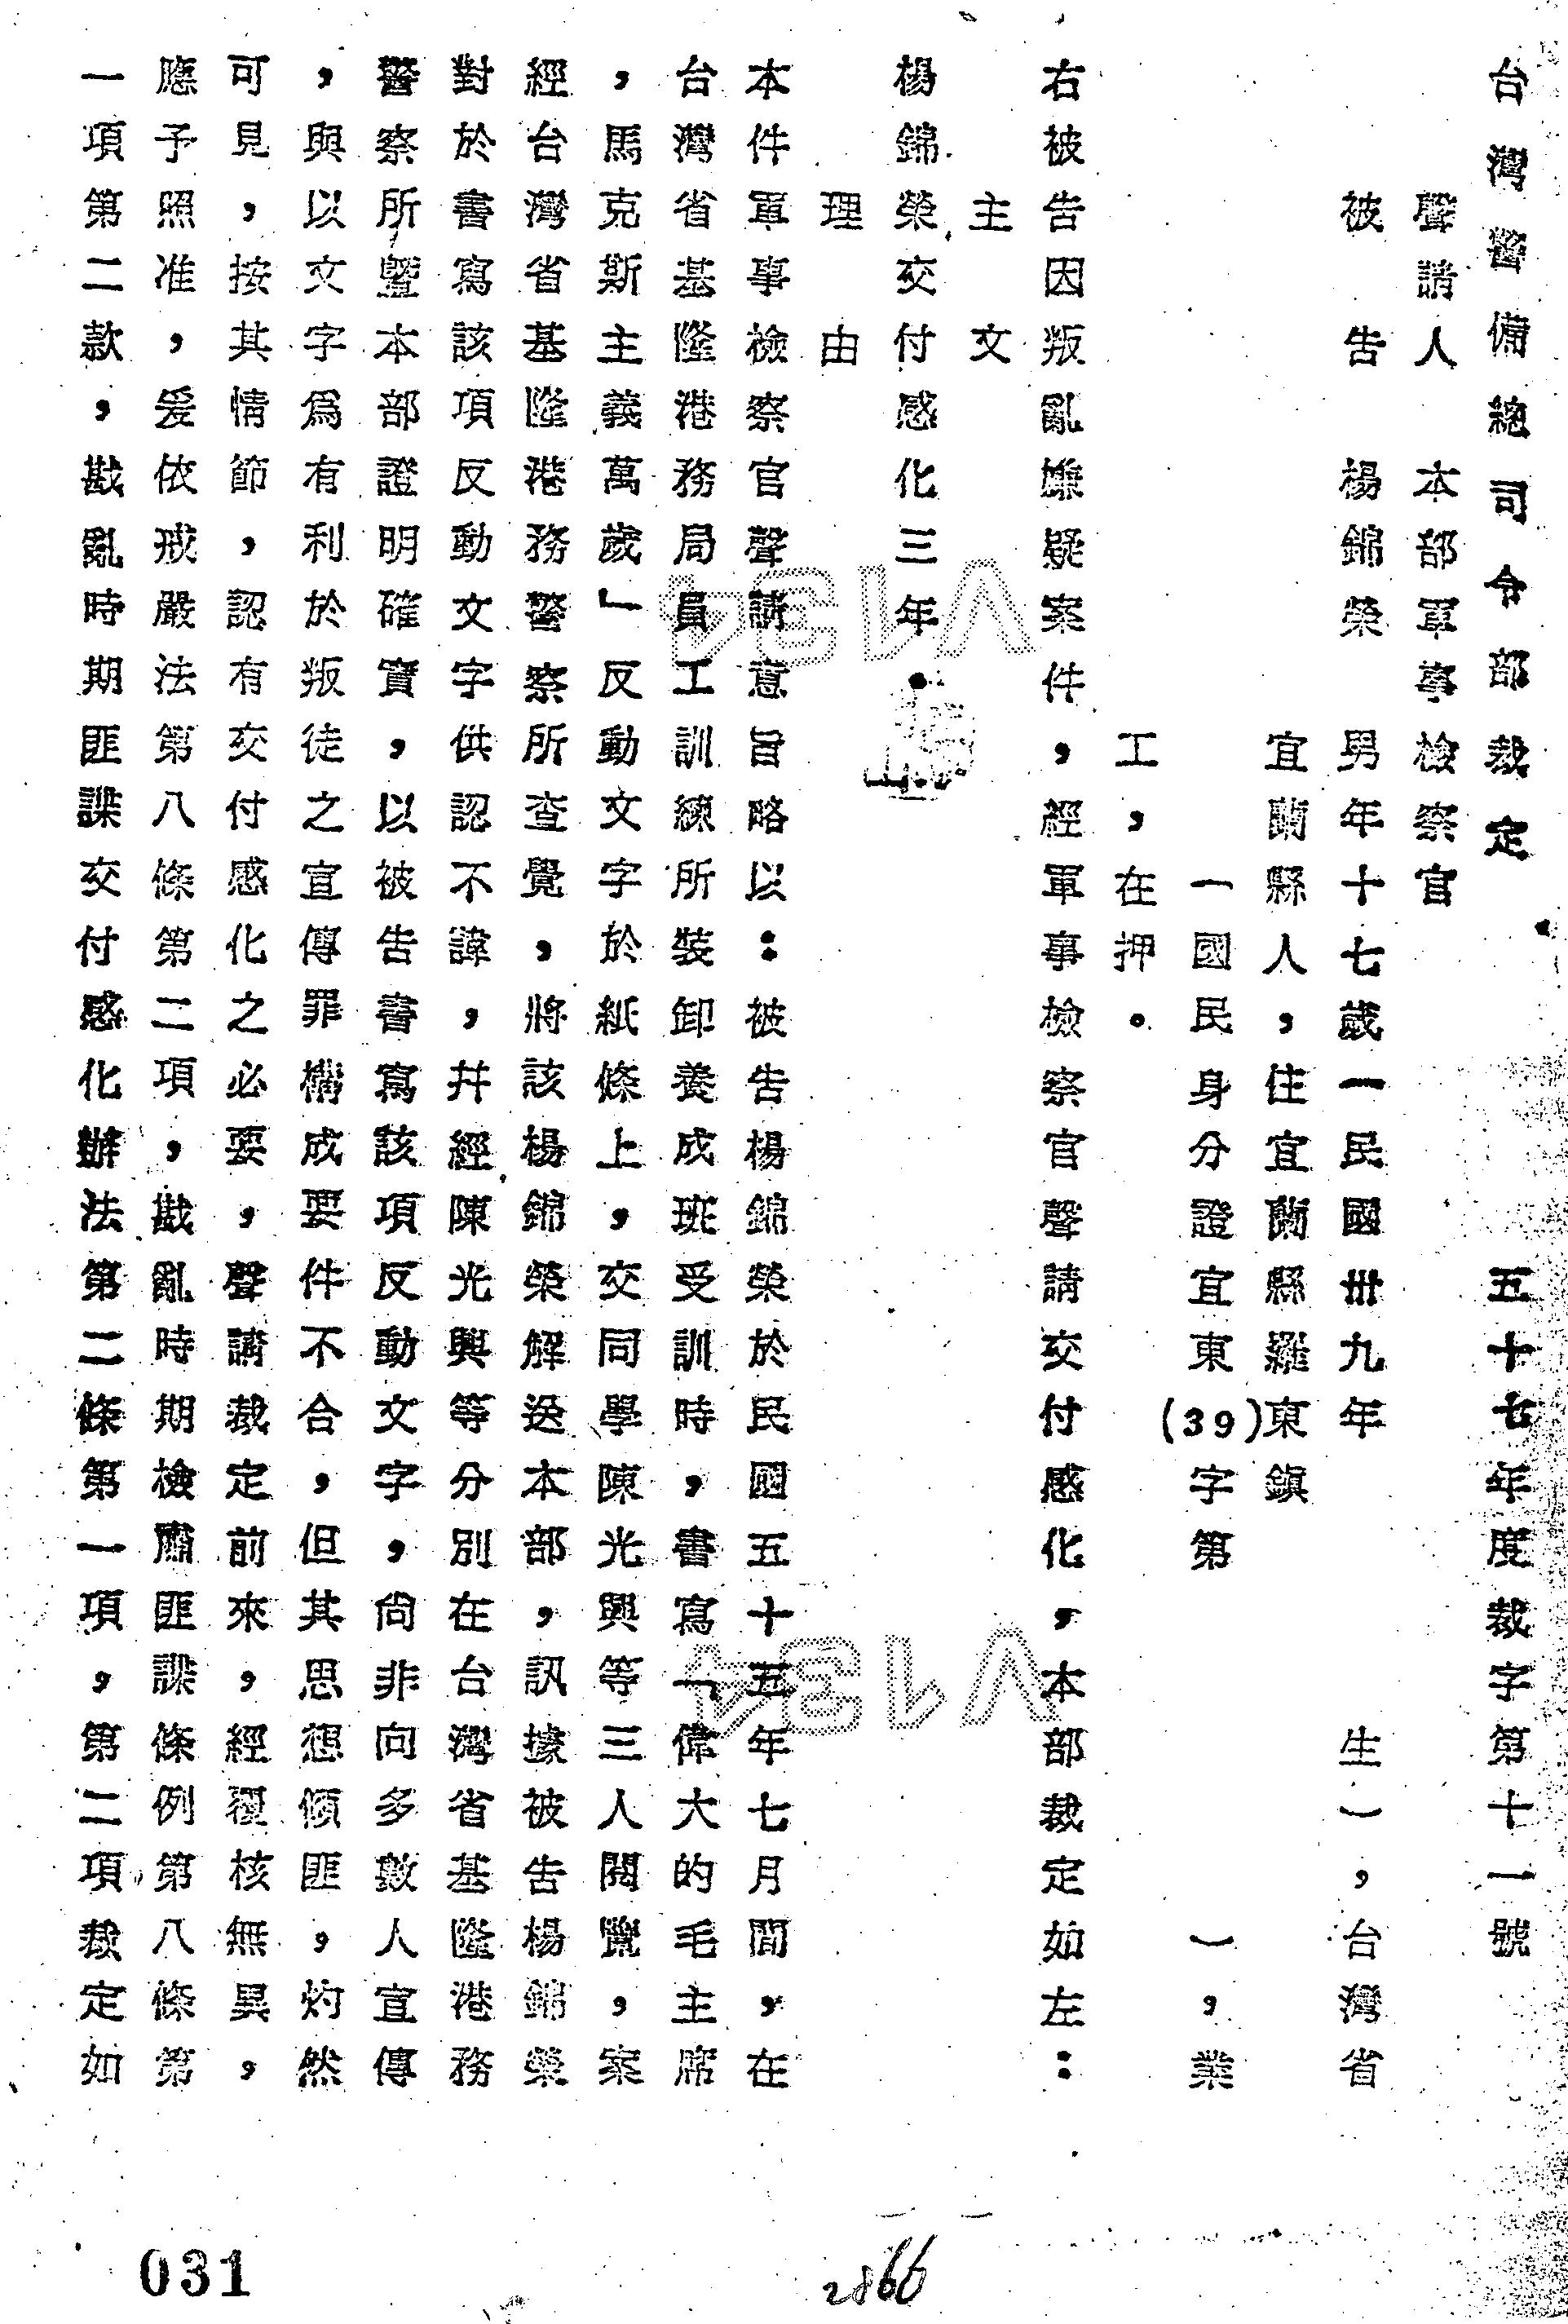 台灣警備總司令部裁定 五十七年度裁字第十一號
聲請人 本部軍事檢察官
被告 楊錦榮 男年十七歲一民國卅九年 生），台灣省
宜蘭縣人，住宜蘭縣羅東鎮
一國民身分證宜東(39)字第 ），業
工，在押。
右被告因叛亂嫌疑案件，經軍事檢察官聲請交付感化，本部裁定如左：
主文
楊錦榮交付感化三年。
理由
本件軍事檢察官聲請意旨略以：被告楊錦榮於民國五十五年七月間，在
台灣省基隆港務局員工訓練所裝卸養成班受訓時，書寫「偉大的毛主席
，馬克斯主義萬歲」反動文字於紙條上，交同學陳光興等三人閱覽，案
經台灣省基隆港務警察所查覺，將該楊錦榮解送本部，訊據被告楊錦榮
對於書寫該項反動文字供認不諱，并經陳光興等分別在台灣省基隆港務
警察所暨本部證明確實，以被告書寫該項反動文字，尚非向多數人宣傳
，與以文字為有利於叛徒之宣傳罪構成要件不合，但其思想傾匪，灼然
可見，按其情節，認有交付感化之必要，聲請裁定前來，經覆核無異，
應予照准，爰依戒嚴法第八條第二項，戡亂時期檢肅匪諜條例第八條第
一項第二款，戡亂時期匪諜交付感化辦法第二條第一項，第二項裁定如
V134
V134
031
2866